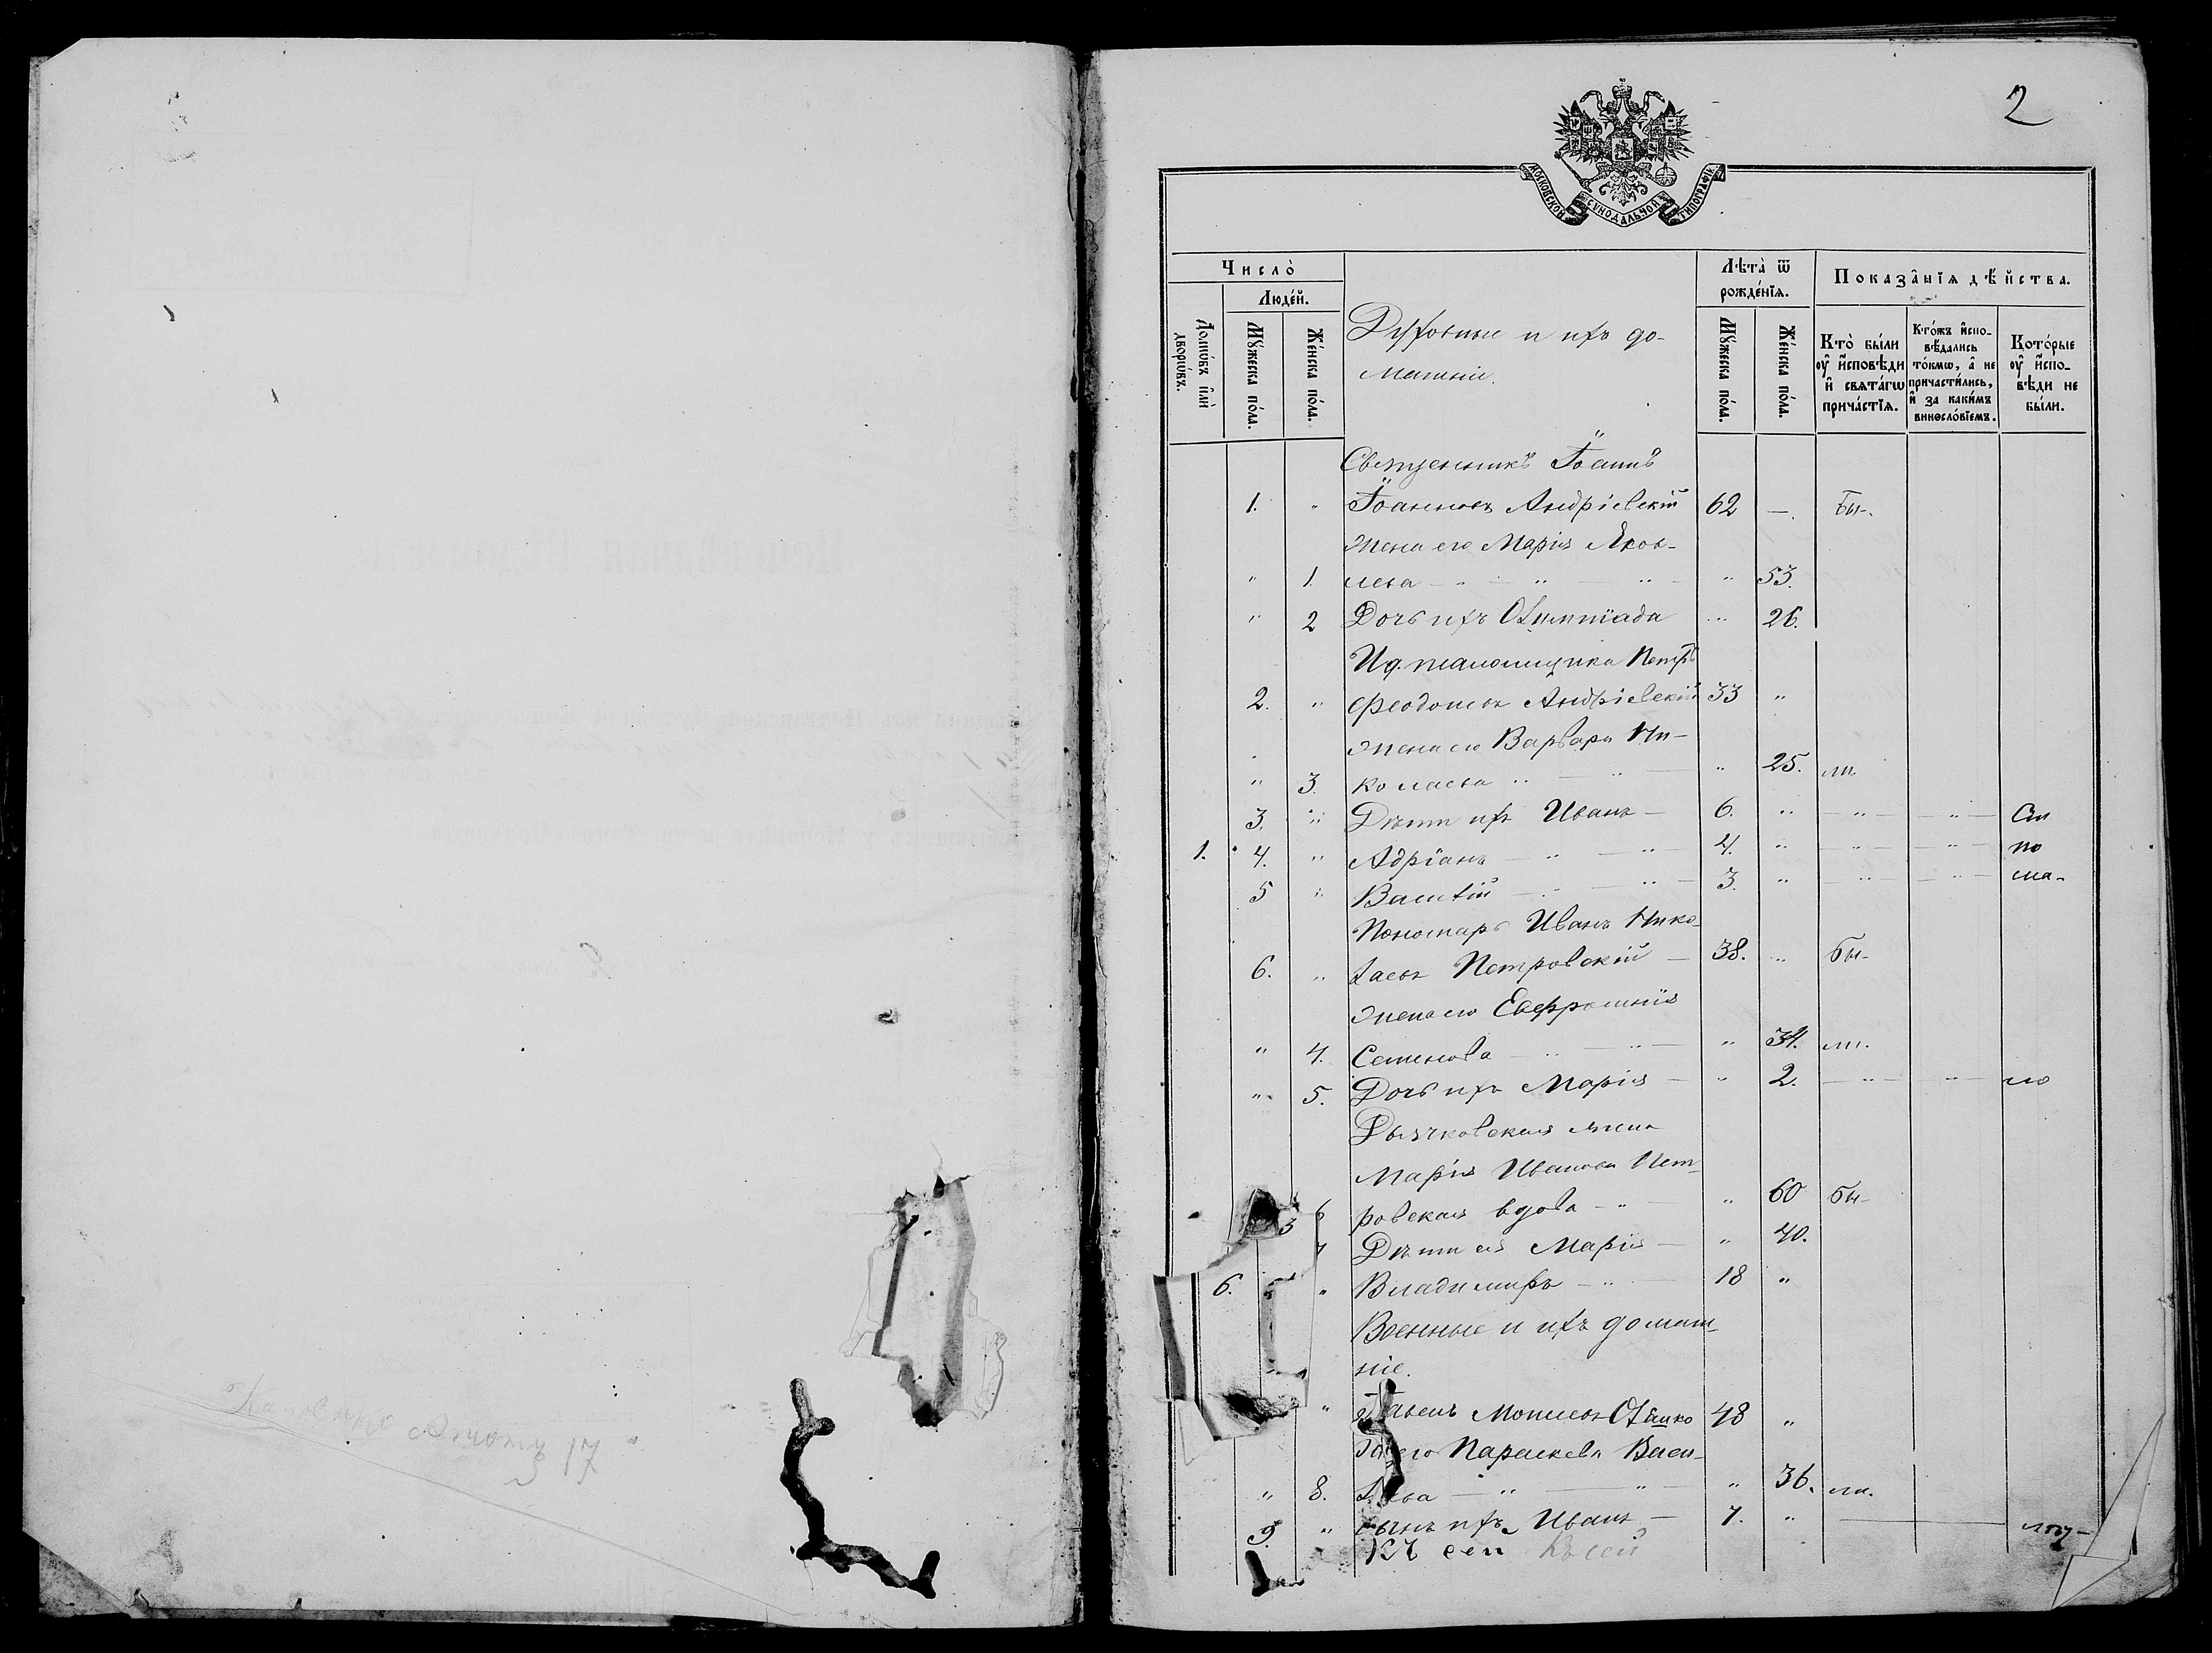 2
МОСКОВСКОЙ СУНОДАЛЬНОЙ ТИПОГРАФІИ
Число̀
Люде́й.
Домѡ́въ и҆лѝ дворѡ́въ.
Мꙋ́жеска по́ла.
Же́нска по́ла.
Духовные и ихъ до-
машніе.
Лѣта̀ ѿ рожде́нїѧ.
Мꙋ́жеска по́ла.
Же́нска по́ла.
Показа̑нїѧ дѣ́йства.
Кто̀ бы́ли ᲂу҆ и҆́сповѣди и҆ свѧта́гѡ прича́стїѧ.
Кто́жъ и҆спо-вѣ́дались то́кмѡ, а҆ не причасти́лись, и҆ за каки́мъ винѡсло́вїемъ.
Кото́рые ᲂу҆ и҆́спо-вѣди не бы́ли.
Священникъ Іоаннъ
1. " Іоанновъ Андріевскій 62 — Бы-
жена его Марія Яков-
" 1. лева " 53.
" 2 Дочь ихъ Олимпіада " 26.
И д. псаломщика Петръ
2. " Феодосіевъ Андріевскій 33 "
жена его Варвара Ни-
" 3. колаева " 25. ли
3. " Дѣти ихъ Иванъ — 6. " " "
1. 4. " Адріанъ 4. " " " по
5 " Василій 3. " " " ма-
Пономарь Иванъ Нико-
6. " лаевъ Петровскій — 38. " Бы-
жена его Евфросинія
" 4. Семенова " 34. ли.
" 5. Дочь ихъ Марія — " 2. " "
Дьячковская жена
Марія Иванова Пет-
6 ровская вдова " 60 бы-
7 Дѣти ея Марія — " 40.
6. " Владимиръ 18 "
Военные и ихъ домаш-
ніе.
" Моисеевъ 48 "
его Параскева Васи-
" 8. " 36. ли.
9. " сынъ ихъ Иванъ — 7. "
къ сей къ сей
17